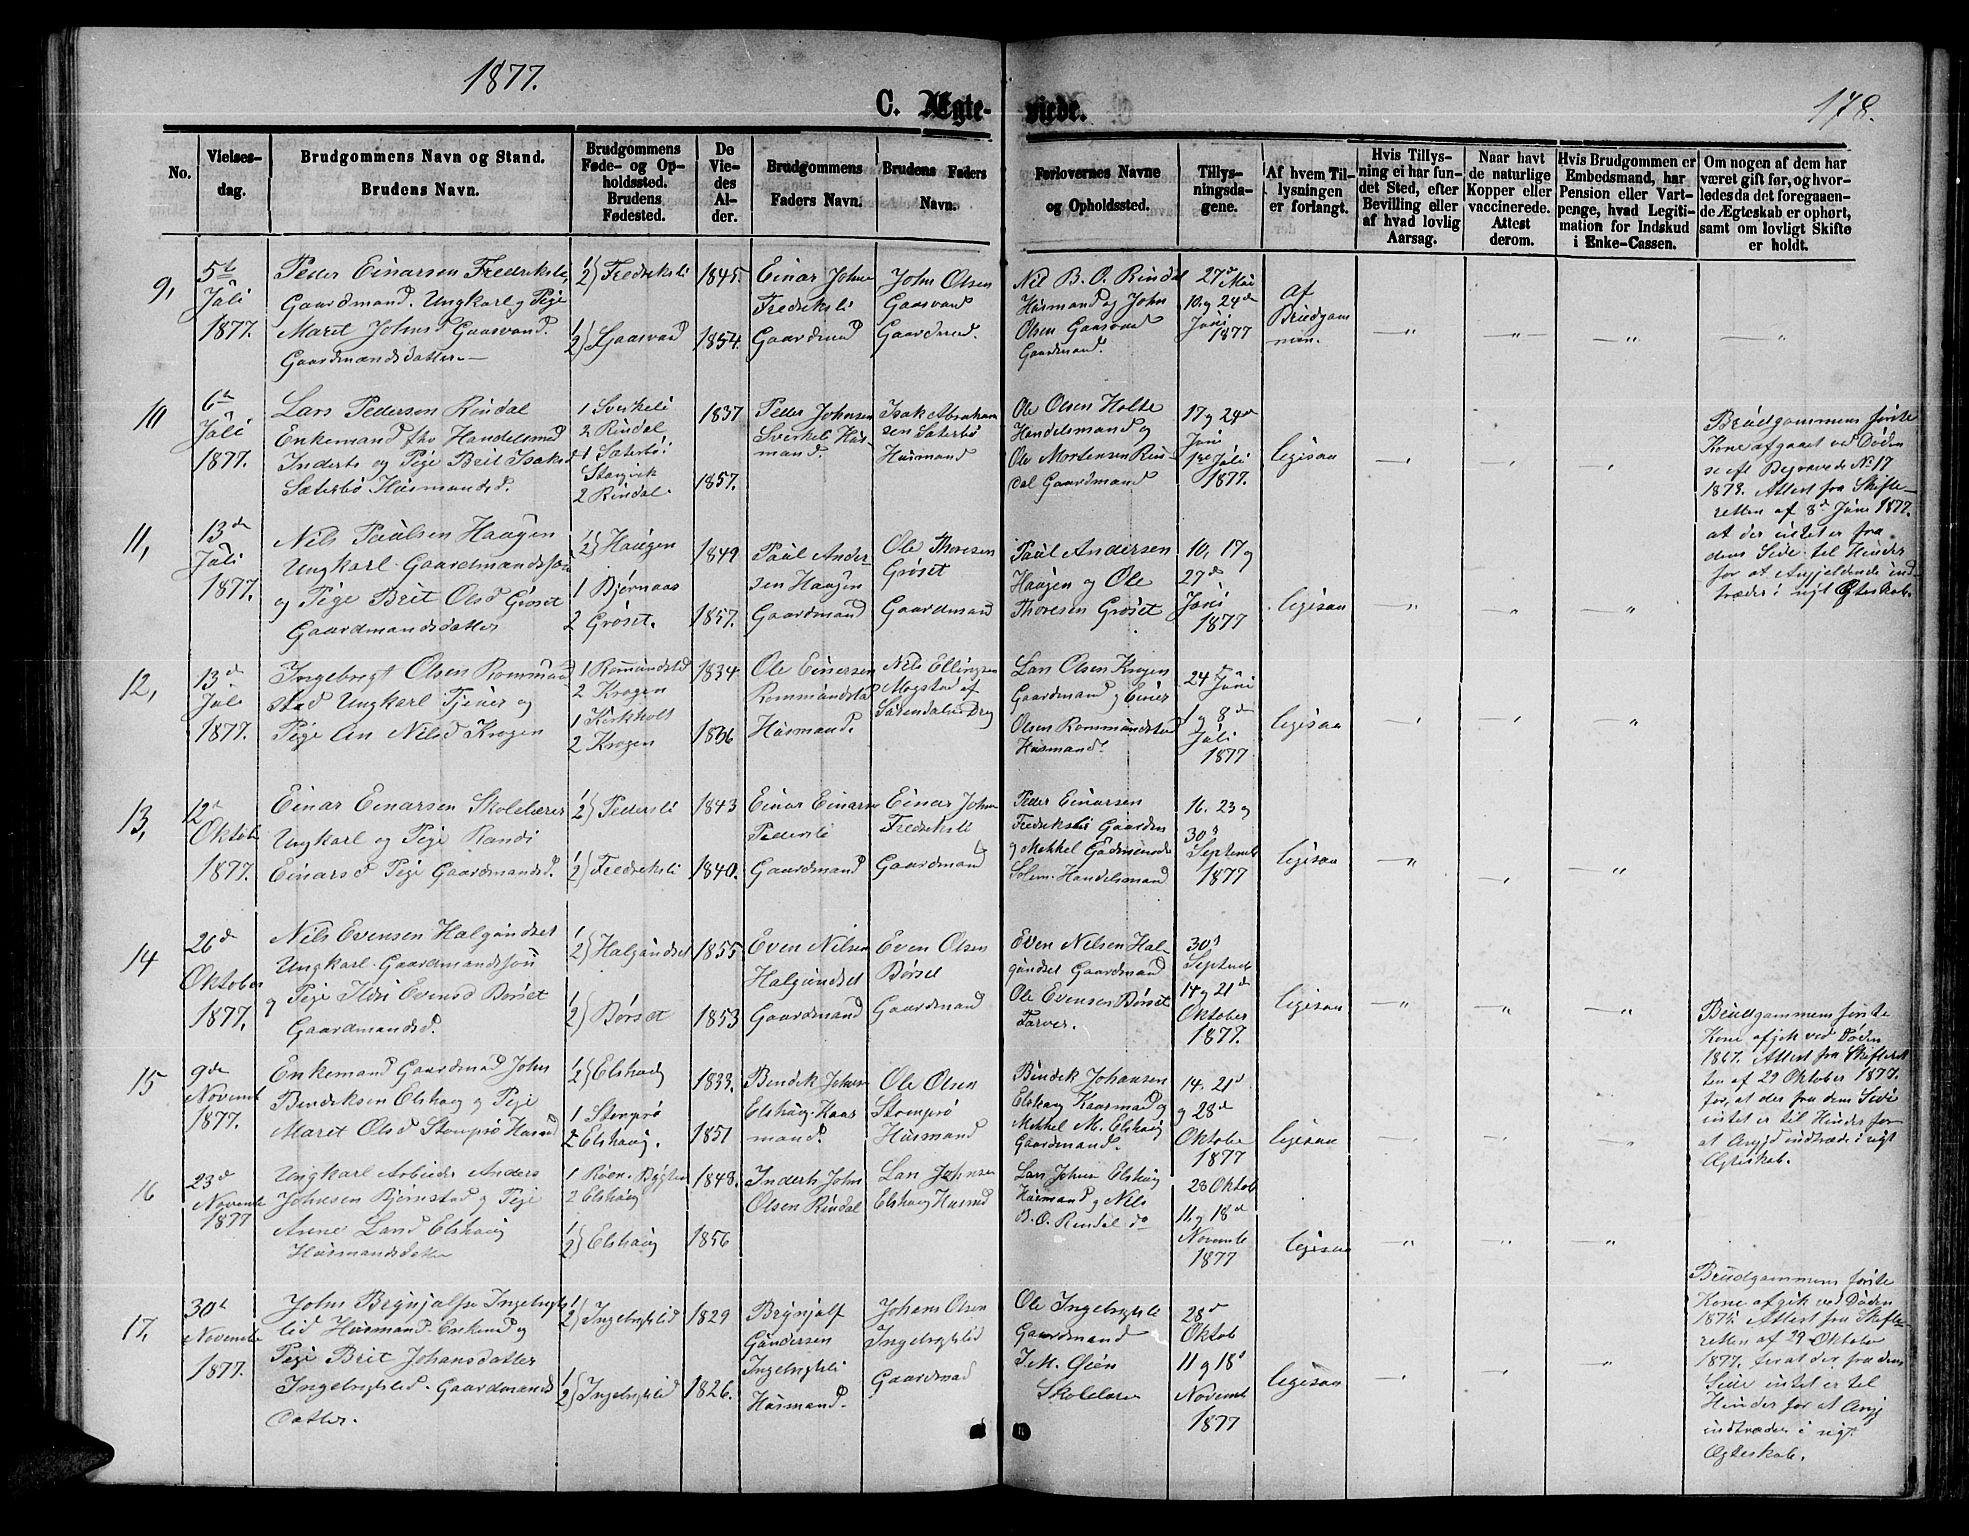 1877.
178.
C. Ægte-
viede.
No.
Vielses-
dag.
Brudgommens Navn og Stand.
Brudens Navn.
Brudgommens
Føde- og Op-
holdssted.
Brudens
Fødested.
De
Vie-
des
Al-
der.
Brudgommens
Faders Navn.
Brudens Faders
Navn.
Forlovernes Navne
og Opholdssted.
Tillys-
ningsda-
gene.
Af hvem Til-
lysningen
er forlangt.
Hvis Tillys-
ning ei har fun-
det Sted, efter
Bevilling eller
af hvad lovlig
Aarsag.
Naar havt
de naturlige
Kopper eller
vaccinerede.
Attest
derom.
Hvis Brudgommen er
Embedsmand, har
Pension eller Vart-
penge, hvad Legiti-
mation for Indskud
i Enke-Cassen.
Om nogen af dem har
været gift før, og hvor-
ledes da det foregaaen-
de Ægteskab er ophørt,
samt om lovligt Skifte
er holdt.
9,
5te
Juli
1877.
Peder Einarsen Fredriksli
Gaardmand. Ungkarl og Pige
Marit Johnsd Gaasvand.
Gaardmandsdatter.
1
2) Fredriksli
1
2) Gaasvand
1845.
1854.
Einar Johns
Fredriksli
Gaardmand
John Olsen
Gaasvand
Gaardmand.
Nil B. O. Rindal
Husmand og John
Olsen Gaasvand
Gaardmand.
27de Mai
10. og 24de
Juni
1877
Af
Brudgom
men.
10
6te
Juli
1877.
Lars Pedersen Rindal
Enkemand fhv Handelsmd
Inderts og Pige Brit Isaksd
Sæterbø Husmandsd.
1 Sverkeli
2 Rindal
1 Sæterbø
Stangvik
2 Rindal.
1837
1857.
Peder Johnsen
Sverkeli Hus-
mand.
Isak Abraham
sen Sæterbø
Husmand
Ole Olsen Holte
Handelsmand og
Ole Mortensen Rin-
dal Gaardmand
17 og 24de
Juni
1ste Juli
1877.
ligesaa
Brudgommens første
Kone afgaaet ved Døden
se eft Begravede No 17
1873. Attest fra Skifte-
retten af 8de Juni 1877.
at der intet er fra
dens Side til Hinder
for at Angjeldende ind-
træder i nyt Ægteskab.
11,
13de
Juli
1877.
Nils Paulsen Haugen
Ungkarl. Gaardmandssøn
og Pige Brit Olsd Grøset
Gaardmandsdatter
1
2) Haugen
1 Bjørnaas
2 Grøset.
1849
1857.
Paul Ander-
sen Haugen
Gaardmand
Ole Thoresen
Grøset
Gaardmand
Paul Andersen
Haugen og Ole
Thoresen Grøset
10, 17 og
27de
Juni
1877
ligesaa
12,
13de
Juli
1877.
Ingebrigt Olsen Rommund
stad Ungkarl Tjener og
Pige An Nilsd Krogen
1 Romundstd
2 Krogen
1 Kirkholt
2 Krogen
1834
1836
Ole Einersen
Rommundstad
Husmand.
Nils Ellingsen
Mogstad af
Surendalen
Lars Olsen Krogen
Gaardmand og Einer
Olsen Rommundstad
Husmand.
24de Juni
1 og 8de
Juli
1877
ligesaa
13,
12te
Oktob
1877.
Einar Einarsen Skolelærer
Ungkarl og Pige Randi
Einarsd Pige Gaardmandsd.
1
2) Pedersli
1
2) Fredriksli
1843
1840.
Einar Einarsen
Pedersli
Gaardmand
Einar Johns
Fredriksli
Gaardmand
Peder Einarsen
Fredriksli Gaardm
og Mekkel Gudmunds
Solem. Handelsmand
16. 23 og
30te
Septemb
1877
ligesaa
14
26de
Oktober
1877.
Nils Evensen Halgundset
Ungkarl. Gaardmandssøn
og Pige Ildri Evensd Børset
Gaardmandsd.
1
2) Halgundset
1
2) Børset
1855
1853
Even Nilsen
Halgundset
Gaardmand
Even Olsen
Børset
Gaardmand
Even Nilsen Hal-
gundset Gaardmand
Ole Evensen Børset
Farver.
30te
Septemb
14 og 21de
Oktober
1877.
ligesaa
15
9de
Novemb
1877.
Enkemand Gaardmand John
Bendiksen Elshaug og Pige
Marit Olsd Stomprø Husmd
1
2) Elshaug
1 Stomprø
2 Elshaug.
1833.
1851
Bendik Johns
Elshaug. Kaar
mand.
Ole Olsen
Stomprø
Husmand
Bendik Johansen
Elshaug Kaarmand og
Mekkel M. Elshaug
Gaardmand.
14. 21de
og 28de
Oktober
1877
ligesaa
Brudgommens første
Kone afgik ved Døden
1867. Attest fra Skifteret
ten af 29 Oktober 1877.
for, at der fra dens Side
intet er til Hinder for
at Angjd indtræde i nyt
Ægteskab.
16
23de
Novemb
1877
Ungkarl Arbeider Anders
Johnsen Bjørnstad og Pige
Anne Larsd Elshaug
Husmandsdatter
1 Røen
2 Elshaug
1
2) Elshaug
1843.
1856
Inderts John
Olsen Rindal
Lars Johnsen
Elshaug Husmd
Lars Johnsen Elshaug
Husmand og Nils
B. O. Rindal do
28 Oktob
11 og 18de
Novemb
1877
ligesaa
17,
30te
Novemb
1877.
John Brynjulfsen Ingebrigts
lid Husmand. Enkemd og
Pige Brit Johansdatter
Ingebrigtslid. Gaardmands
datter.
1
2) Ingebrigtslid
1
2) Ingebrigtslid
1829
1826.
Brynjulf
Gundersen
Ingebrigtsli
Husmand.
Johans Olsen
Ingebrigtslid
Gaardmand
Ole Ingebrigtsli
Gaardmand
J. M. Øien
Skolelærer
28de
Oktob
11 og 18de
Novemb
1877
ligesaa
Brudgommens første
Kone afgik ved Døden
1875. Attest fra Skifte-
retten af 29 Oktober
1877. for at der fra dens
Side intet er til
Hinder for at Angj
indtræder i nyt
Ægteskab.